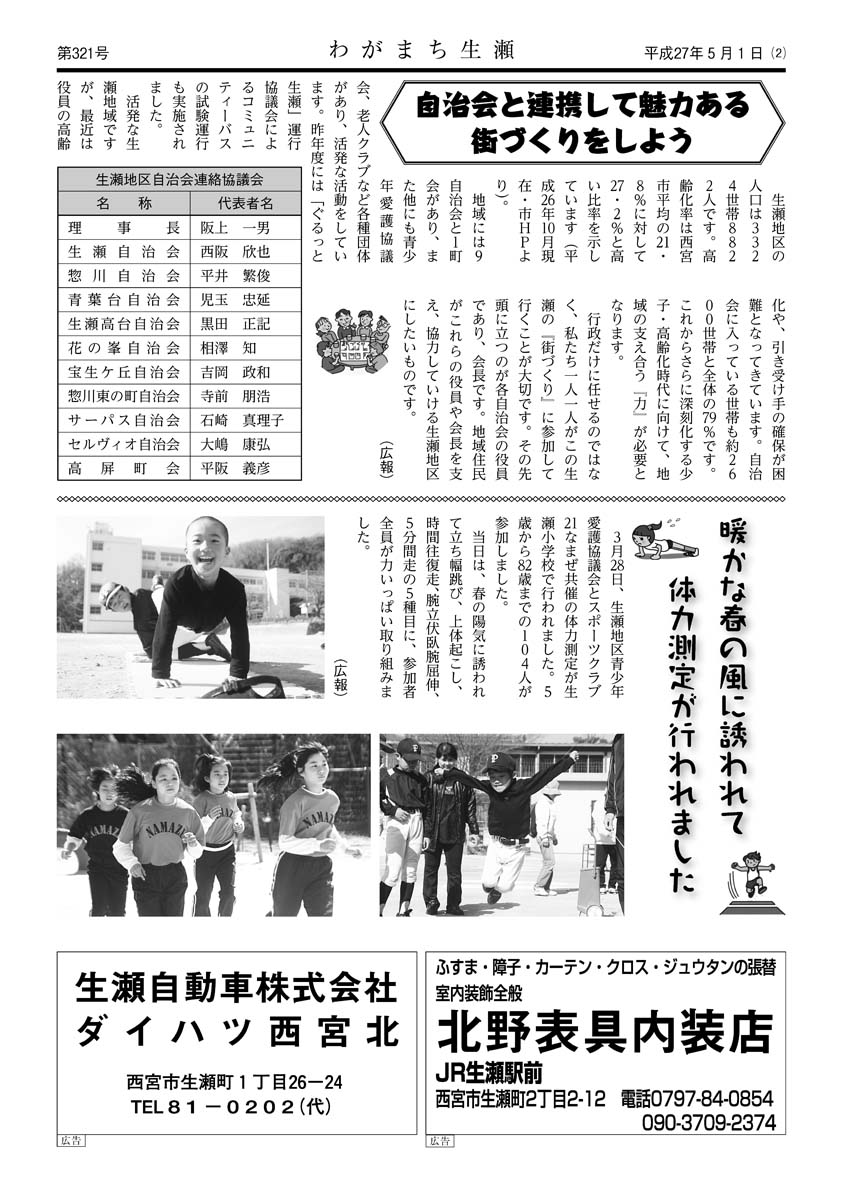 第321号
わがまち生瀬
平成27年5月1日 (2)
自治会と連携して魅力ある
街づくりをしよう
生瀬地区の
人口は332
4世帯882
2人です。高
齢化率は西宮
市平均の21・
8％に対して
27・2％と高
い比率を示し
ています（平
成26年10月現
在・市HPよ
り）。
地域には9
自治会と1町
会があり、ま
た他にも青少
年愛護協議
会、老人クラブなど各種団体
があり、活発な活動をしてい
ます。昨年度には「ぐるっと
生瀬」運行
協議会によ
るコミュニ
ティーバス
の試験運行
も実施され
ました。
活発な生
瀬地域です
が、最近は
役員の高齢
化や、引き受け手の確保が困
難となってきています。自治
会に入っている世帯も約26
00世帯と全体の79％です。
これからさらに深刻化する少
子・高齢化時代に向けて、地
域の支え合う『力』が必要と
なります。
行政だけに任せるのではな
く、私たち一人一人がこの生
瀬の『街づくり』に参加して
行くことが大切です。その先
頭に立つのが各自治会の役員
であり、会長です。地域住民
がこれらの役員や会長を支
え、協力していける生瀬地区
にしたいものです。
（広報）
生瀬地区自治会連絡協議会
名 称 代表者名
理事長 阪上 一男
生瀬自治会 西阪 欣也
惣川自治会 平井 繁俊
青葉台自治会 児玉 忠延
生瀬高台自治会 黒田 正記
花の峯自治会 相澤 知
宝生ケ丘自治会 吉岡 政和
惣川東の町自治会 寺前 朋浩
サーパス自治会 石崎 真理子
セルヴィオ自治会 大嶋 康弘
高屏町会 平阪 義彦
暖かな春の風に誘われて
体力測定が行われました
3月28日、生瀬地区青少年
愛護協議会とスポーツクラブ
21なまぜ共催の体力測定が生
瀬小学校で行われました。5
歳から82歳までの104人が
参加しました。
当日は、春の陽気に誘われ
て立ち幅跳び、上体起こし、
時間往復走、腕立伏臥腕屈伸、
5分間走の5種目に、参加者
全員が力いっぱい取り組みま
した。
（広報）
NAMAZE
NAMAZE
生瀬自動車株式会社
ダイハツ西宮北
西宮市生瀬町1丁目26－24
TEL81－0202（代）
広告
ふすま・障子・カーテン・クロス・ジュウタンの張替
室内装飾全般
北野表具内装店
JR生瀬駅前
西宮市生瀬町2丁目2-12 電話0797-84-0854
090-3709-2374
広告